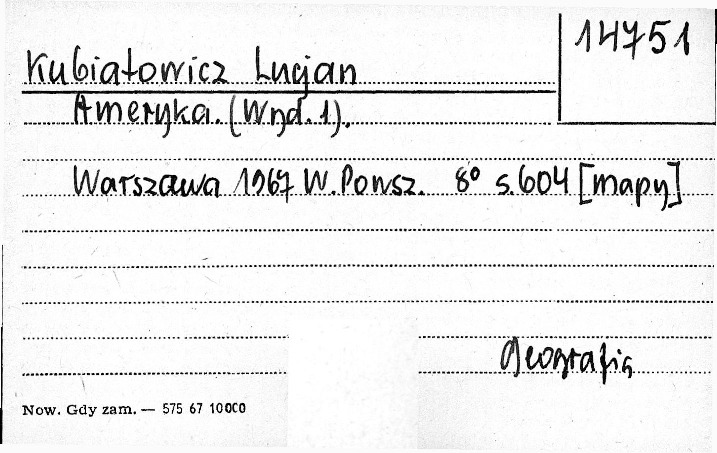 14751
Kubiatowicz Lucjan
Ameryka. (Wyd. 1).
Warszawa 1967 W. Powsz. 8° s. 604 [mapy]
geografia
Now. Gdy zam. — 575 67 10000